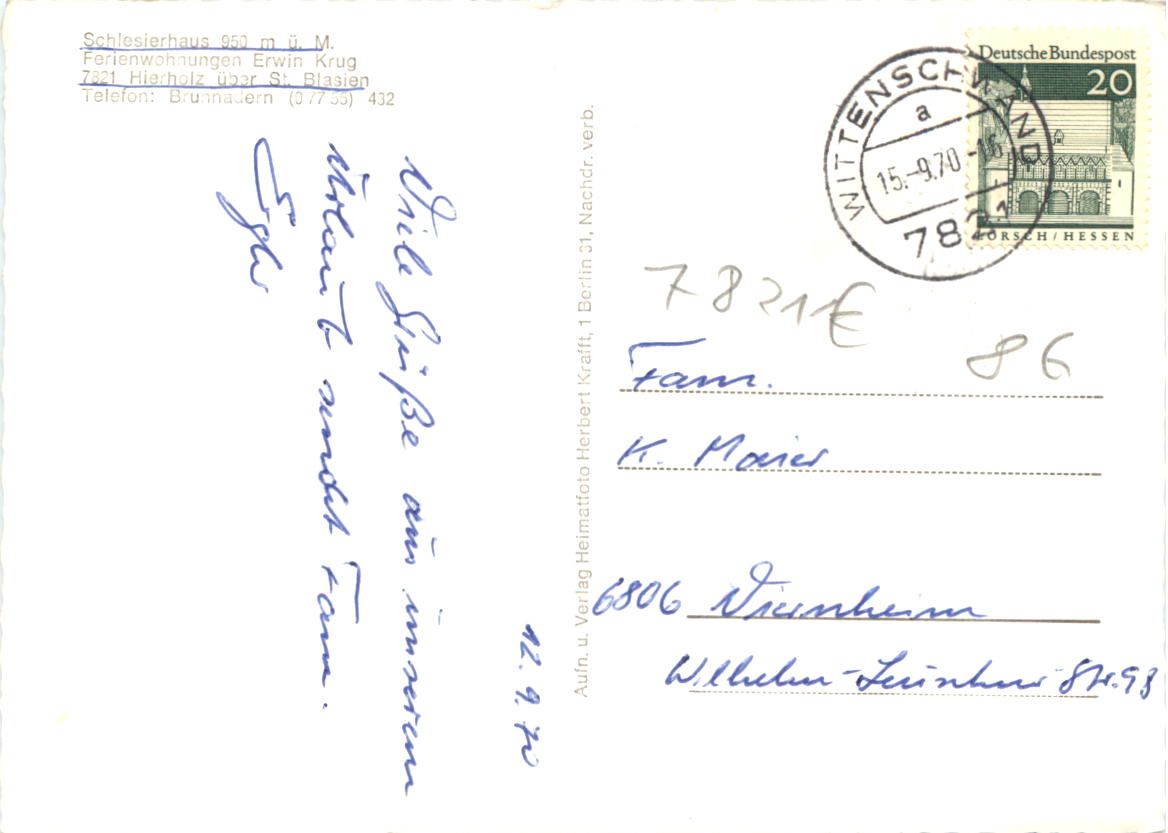 Schlesierhaus 950 m ü. M.
Ferienwohnungen Erwin Krug
7821 Hierholz über St. Blasien
Telefon: Brunnadern (0 77 55) 432
12.9.70
Viele Grüße aus unserem
Urlaub sendet Fam.
Aufn. u. Verlag Heimatfoto Herbert Krafft, 1 Berlin 31, Nachdr. verb.
WITTENSCHWAND
a
15.-9.70-16
7821
Deutsche Bundespost
20
LORSCH / HESSEN
7821 €
86
Fam.
K. Maier
6806 Viernheim
Wilhelm-Leuschner-Str. 93